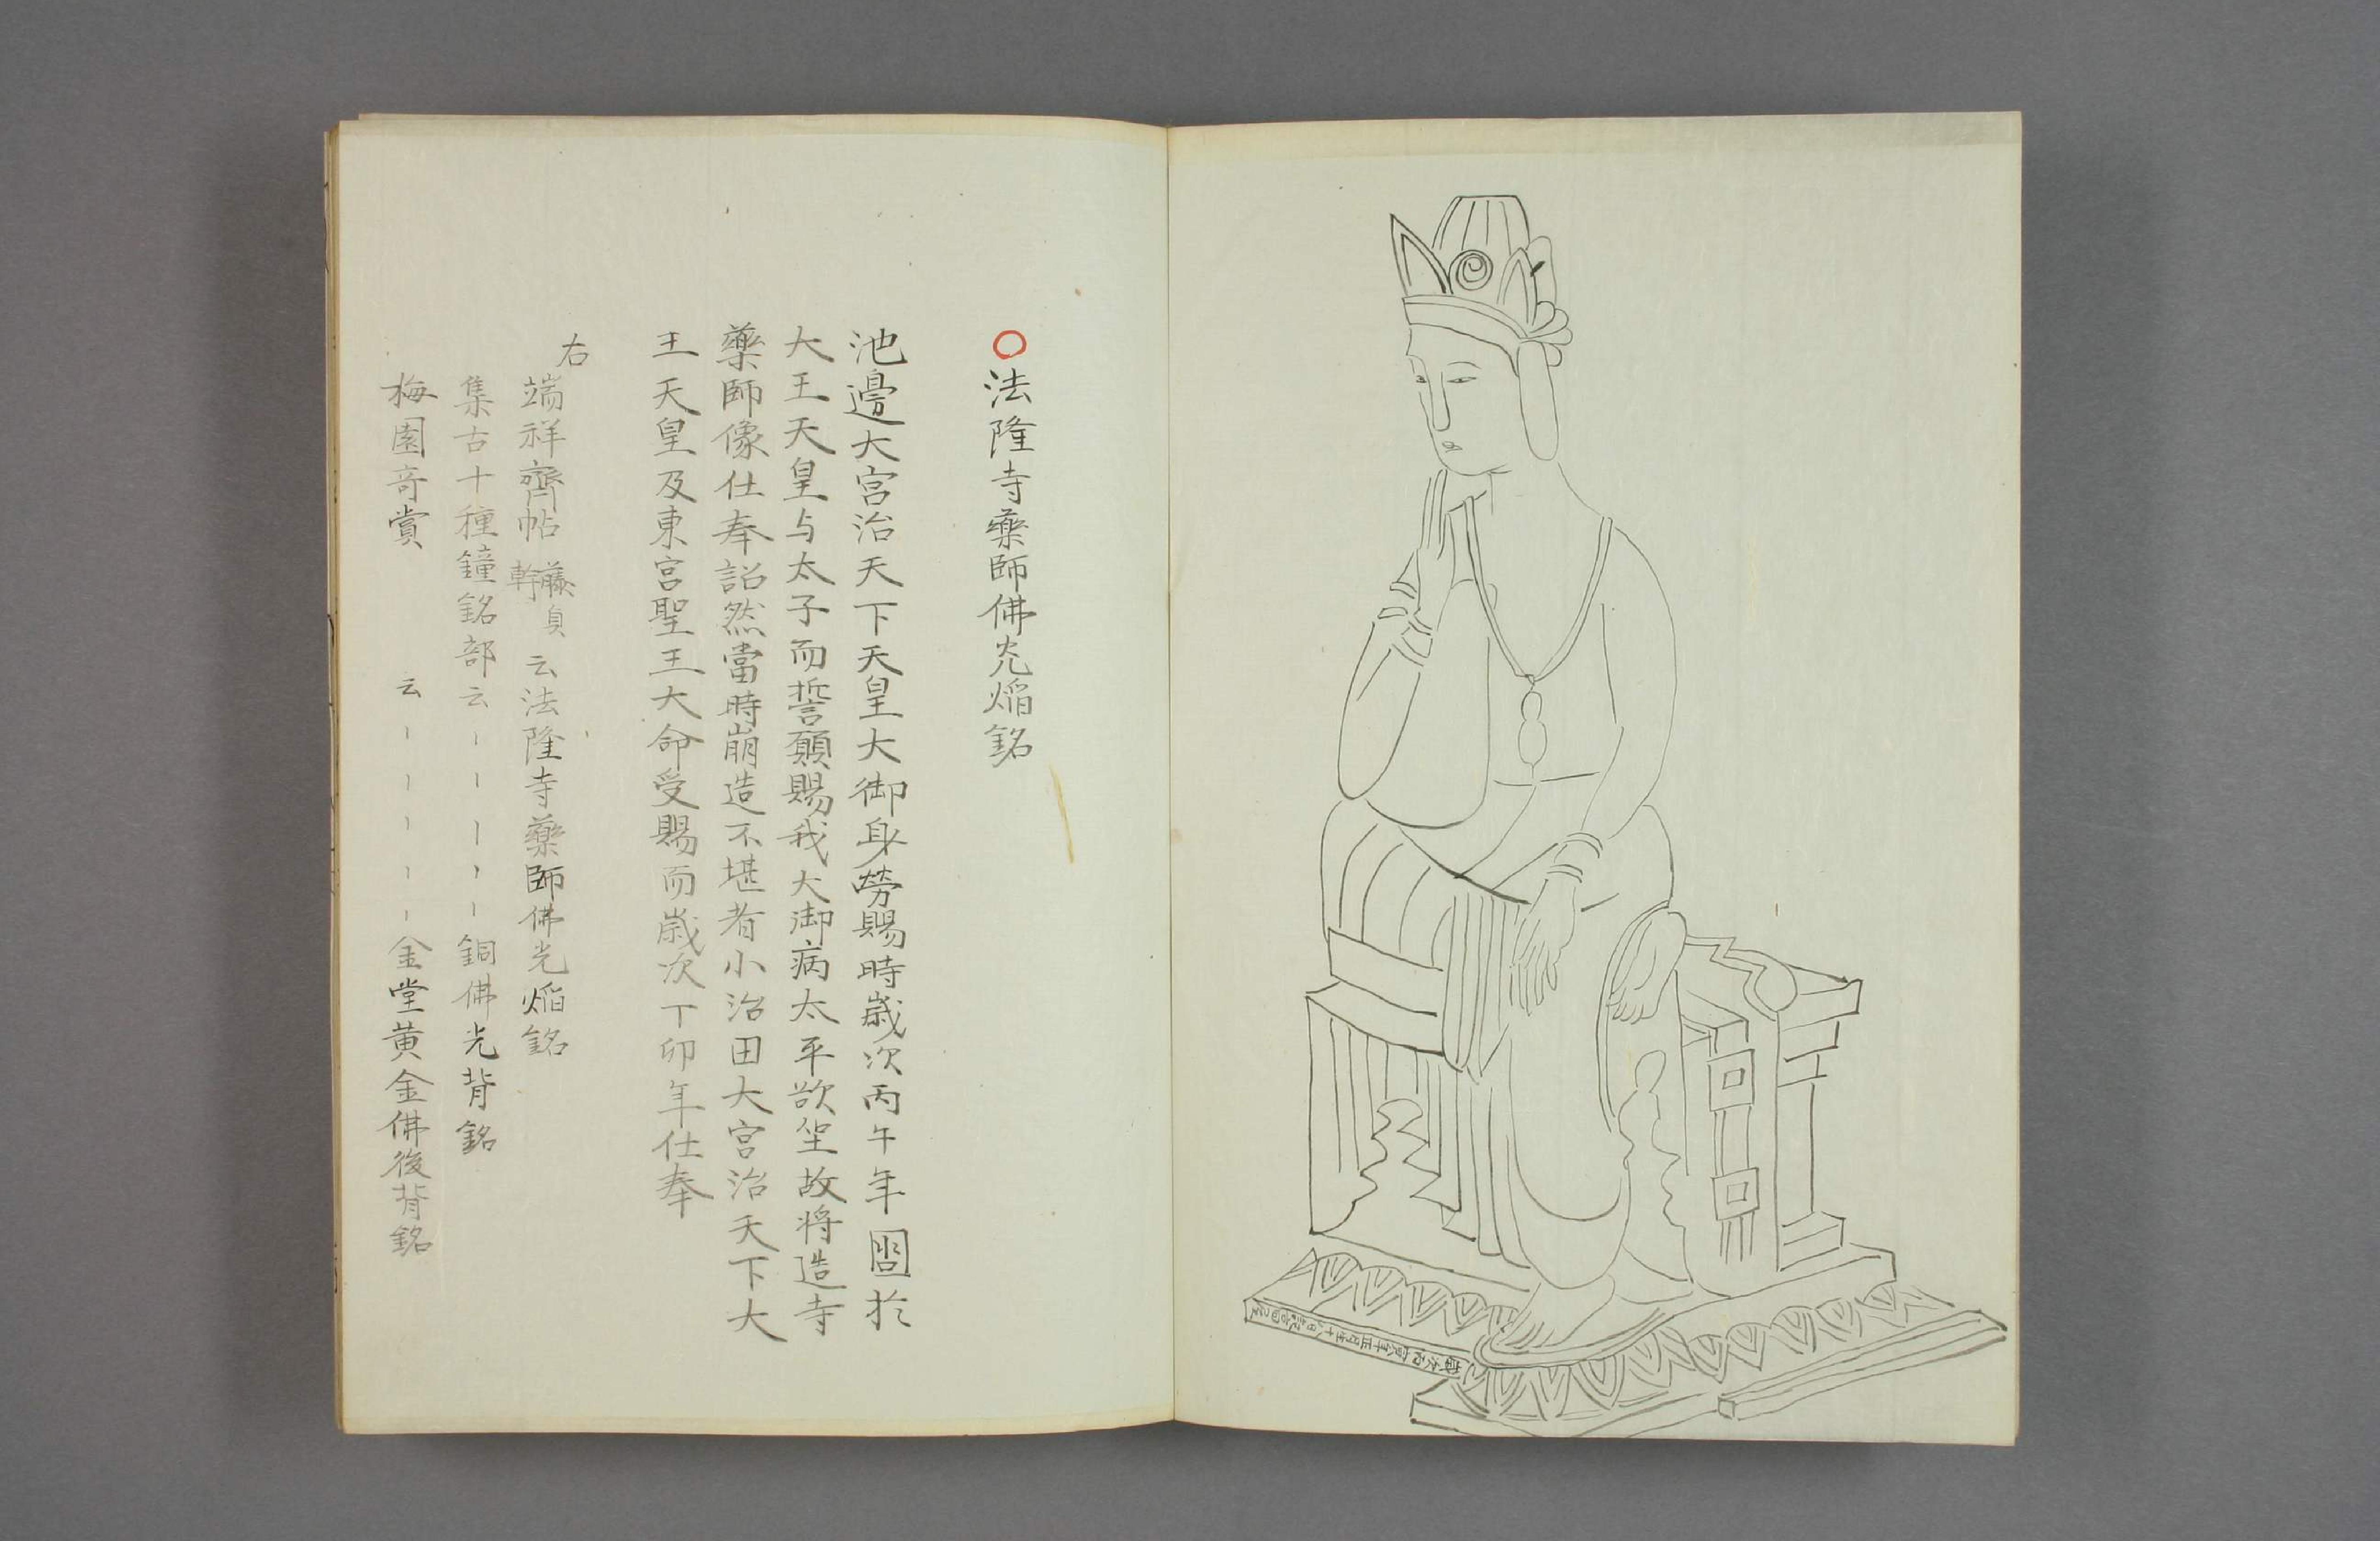 歳次丙寅年正月生十八日記高屋
○法隆寺藥師佛光焔銘
池邊大宮治天下天皇大御身勞賜時歳次丙午年召於
大王天皇与太子而誓願賜我大御病太平欲坐故将造寺
藥師像仕奉詔然當時崩造不堪者小治田大宮治天下大
王天皇及東宮聖王大命受賜而歳次丁卯年仕奉
右
端祥齊帖藤貞幹云法隆寺藥師佛光焔銘
集古十種鐘銘部云｜｜｜｜｜銅佛光背銘
梅園奇賞云｜｜｜｜｜金堂黄金佛後背銘